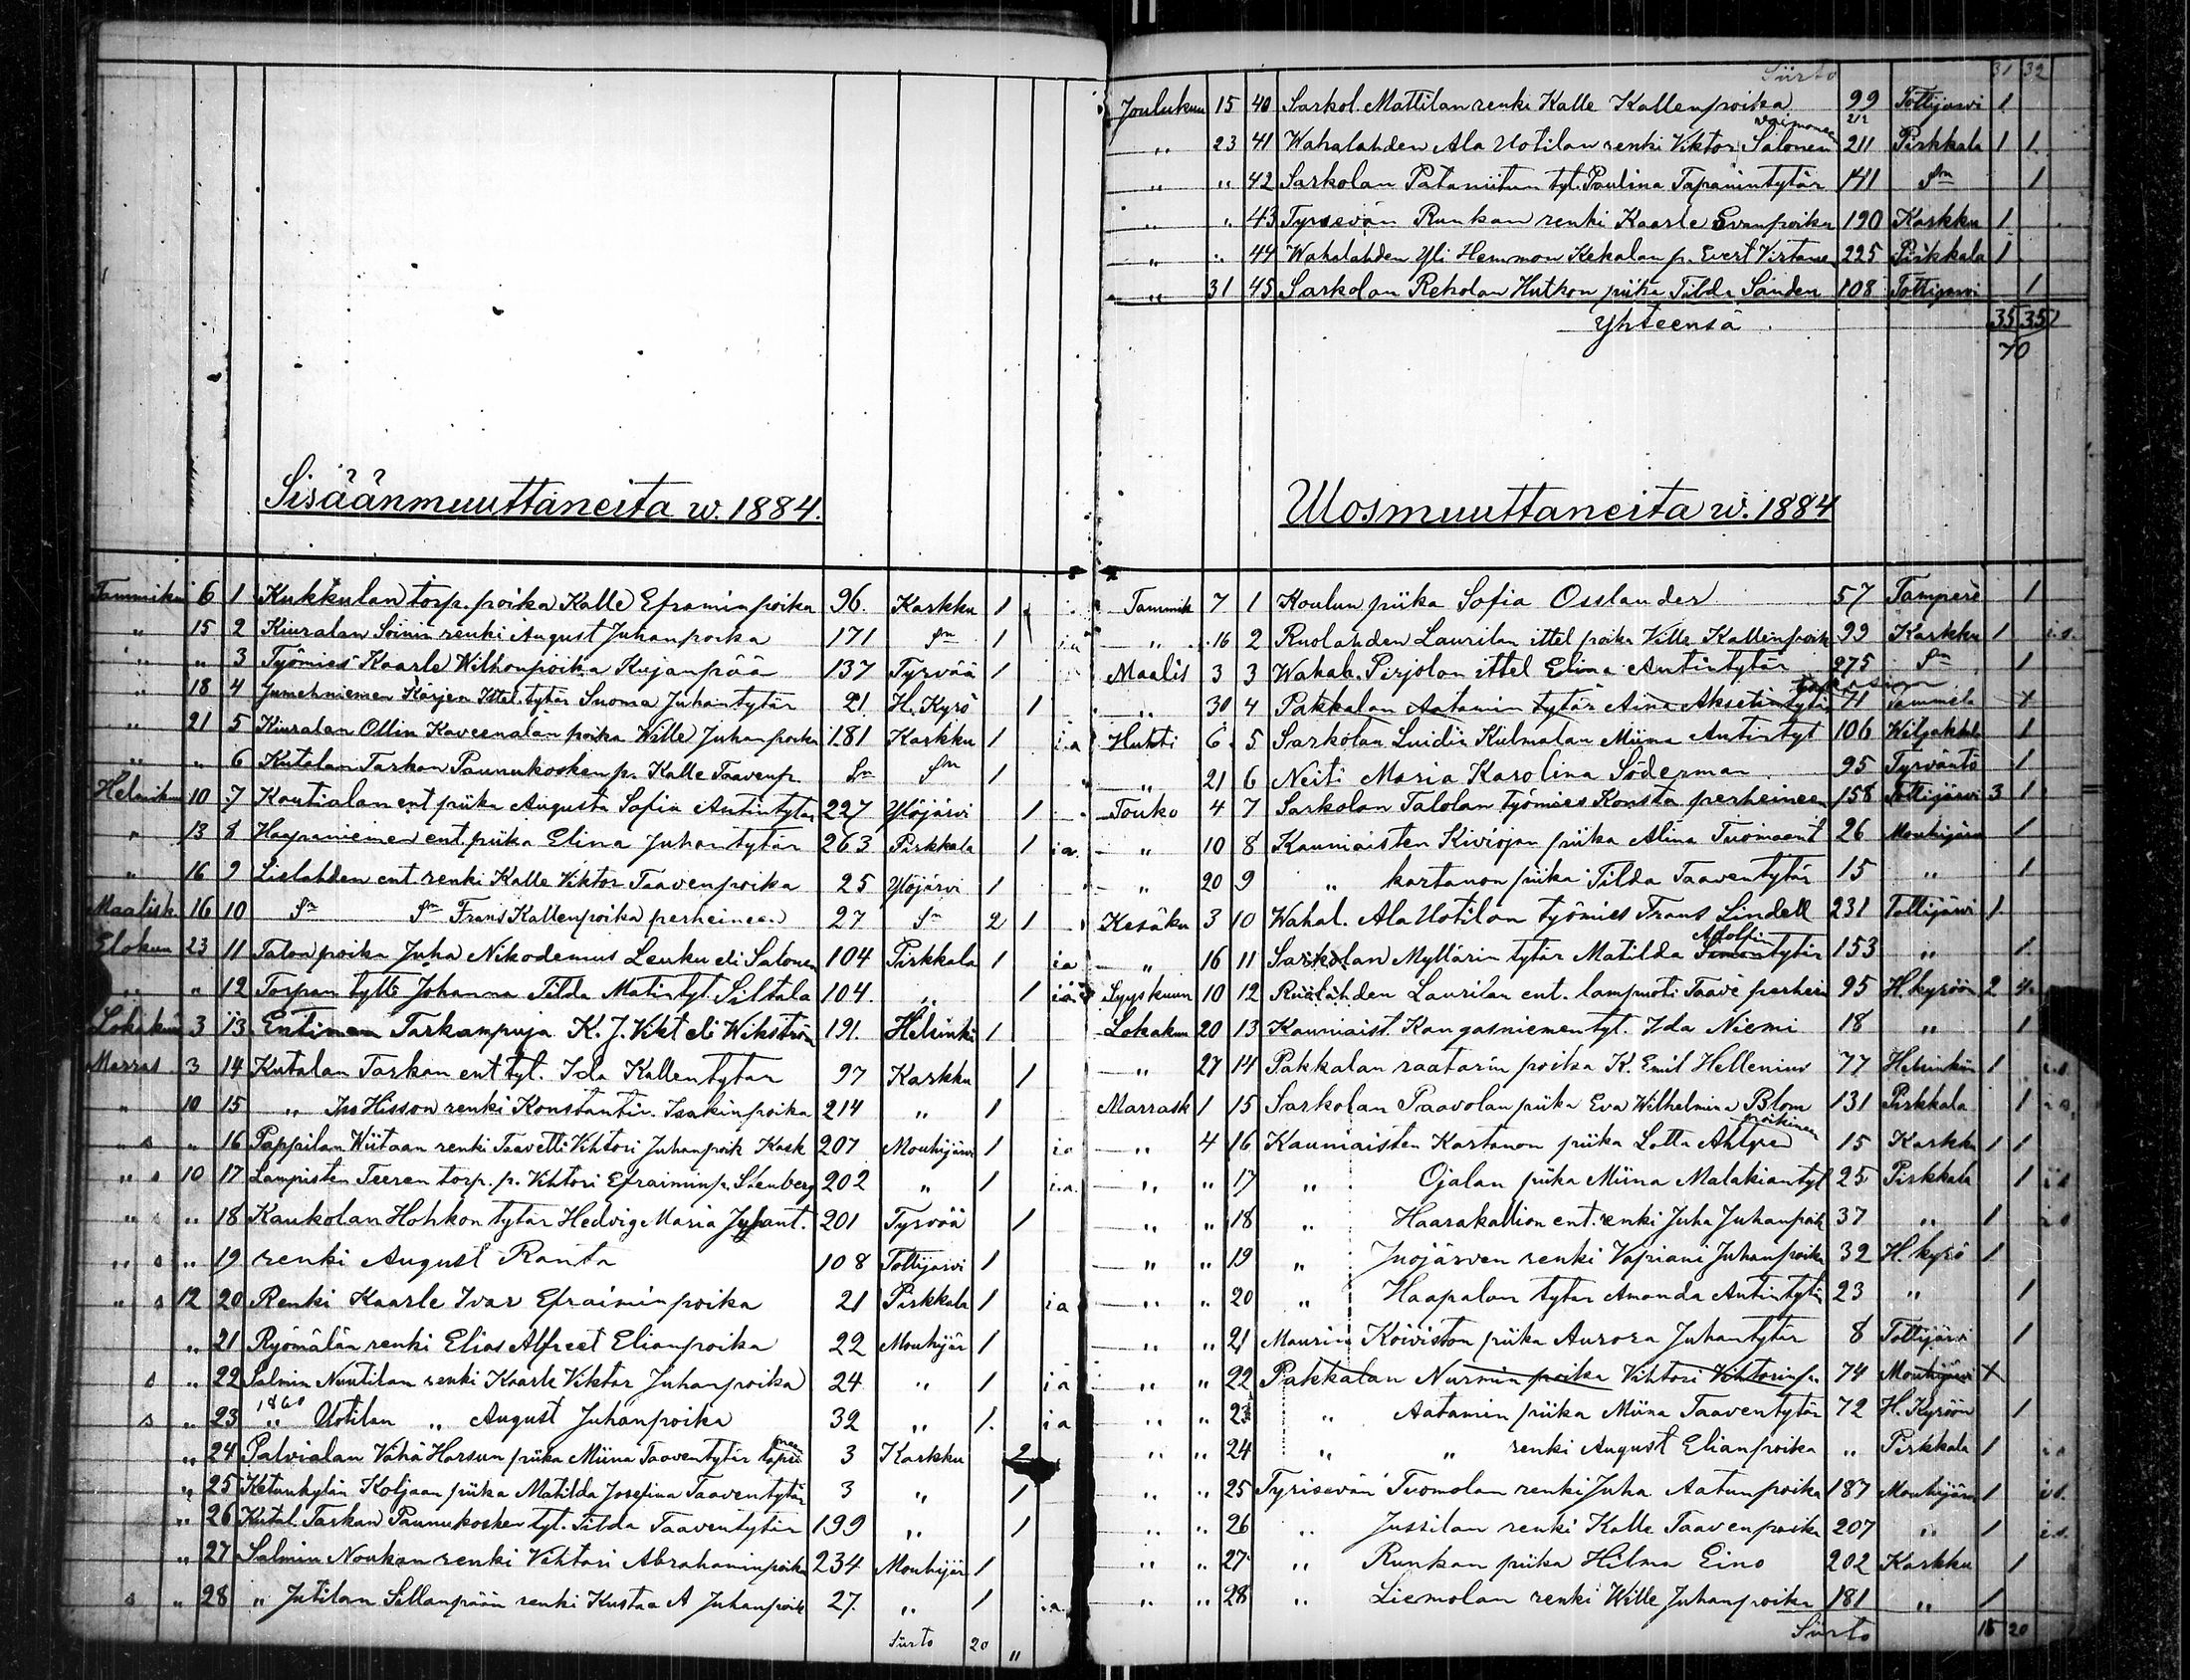 Sisäänmuuttaneita w. 1884.
Tammiku 6 1 Kukkulan torp. poika Kalle Eframinpoika 96 Karkku 1
" 15 2 Kiuralan Soinin renki August Juhanpoika 171 Sm 1 i.a
" " 3 Työmies Kaarle Wilhonpoika Kujanpää 137 Tyrvää 1
" 18 4 Karjen Ittel. tytär Suoma Juhantytär 21 H. Kyrö 1
" 21 5 Kiuralan Ollin Kaveenalan poika Wille Juhanpoika 181 Karkku 1 i.a
" " 6 Kutalan Tarkan Paunukosken p. Kalle Taavenp. Sm Sm 1
Helmiku 10 7 Koutialan ent piika Augusta Sofia Antintytar 227 Ylöjärvi 1
" 13 8 Haapaniemen ent. piika Elina Juhantytär 263 Pirkkala 1 i a.
" 16 9 Lielahden ent. renki Kalle Viktor Taavenpoika 25 Ylöjärvi 1
Maalisk 16 10 Sm Sm Frans Kallenpoika perheineen 27 Sm 2 1
Elokuu 23 11 Talon poika Juha Nikodemus Leuku eli Salonen 104 Pirkkala 1 i a
" " 12 Torpan tyttö Johanna Tilda Matintyt. Siltala 104. " 1 i a
Lokakuu 3 13 Entinen Tarkampuja K. J. Vikt eli Wikström 191. Helsinki 1
Marras 3 14 Kutalan Tarkan ent tyt. Ida Kallentytar 97 Karkku 1
" 10 15 " Iso Hisson renki Konstantin Isakinpoika 214 " 1
" s " 16 Pappilan Wiitaan renki Taavetti Vihtori Juhanpoik Kask 207 Mouhijärvi 1 i a
" s 10 17 Lampisten Teeren torp. p. Vihtori Efraiminp. Stenberg 202 " 1 i.a.
" s " 18 Kaukolan Hohkon tytär Hedvig Maria Juhant. 201 Tyrvää 1
" s " 19 renki August Ranta 108 Tottijärvi 1
" s 12 20 Renki Kaarle Ivar Efraiminpoika 21 Pirkkala 1 i a
" 21 Ryömälän renki Elias Alfred Elianpoika 22 Mouhijär 1
s " 22 Salmin Nuutilan renki Kaarle Viktor Juhanpoika 24 " 1 i a
s " 23 1860 " Uotilan " August Juhanpoika 32 " 1. i a
" 24 Palvialan Vähä Harsun piika Miina Taaventytär 3 Karkku 2
" 25 Ketunkylän Koljaan piika Matilda Josefina Taaventytär 3 " 1
" 26 Kutal. Tarkan Paunukosken tyt. Tilda Taaventytär 199 " 1
" 27 Salmin Noukan renki Vihtori Abrahaminpoika 234 Mouhijär 1
s " 28 " Jutilan Sillanpään renki Kustaa A Juhanpoik 27. " 1 i.a.
Siirto 20 "
Siirto 31 32
Joulukuu 15 40 Sarkol. Mattilan renki Kalle Kallenpoika 99 Tottijärvi 1
" 23 41 Wahalahden Ala Uotilan renki Viktor Salonen vaimoneen 212 211 Pirkkala 1 1
" " 42 Sarkolan Pataniitun tyt. Paulina Tapanintytär 141 Sm 1
" " 43 Tyrisevän Runkan renki Kaarle Evanpoika 190 Karkku 1
" " 44 Wahalahden Yli Hemmon Kekalan p. Evert Virtanen 225 Pirkkala 1
" 31 45 Sarkolan Rekolan Hutkon piika Tilda Sanden 108 Tottijärvi 1
Yhteensä 35 35
70
Ulosmuuttaneita w. 1884
Tammik 7 1 Koulun piika Sofia Osslander 57 Tampere 1
" 16 2 Ruolahden Laurilan ittel poika Ville Kallenpoik 99 Karkku 1 i.s.
Maalis 3 3 Wahal. Pirjolan ittel Elina Antintytär 275 Sm 1
" 30 4 Pakkalan Aatamin tytär Aina Aksetintytär 71 Tammela x
Huhti 6 5 Sarkolan Luidin Kulmalan Miina Antintyt 106 1
" 21 6 Neiti Maria Karolina Söderman 95 Tyrväntö 1
Touko 4 7 Sarkolan Talolan työmies Konsta perheineen 158 Tottijärvi 3 1
" 10 8 Kauniaisten Kiviojan piika Alina Tuomaant 26 Mouhijärvi 1
" 20 9 " kartanon piika Tilda Taaventytär 15 " 1
Kesäku 3 10 Wahal. Ala Uotilan työmies Frans Lindell 231 Tottijärvi 1
" 16 11 Sarkolan Myllärin tytär Matilda Adolfin Simontytär 153 " 1
Syyskuun 10 12 Ruolahden Laurilan ent. lampuoti Taave perhein 95 H. kyröön 2 4
Lokakuu 20 13 Kauniaist. Kangasniemen tyt. Ida Niemi 18 " 1
" 27 14 Pakkalan raatarin poika K. Emil Hellenius 77 Helsinkiin 1 i.s.
Marrask 1 15 Sarkolan Paavolan piika Eva Wilhelmina Blom 131 Pirkkala 1 i s.
" 4 16 Kauniaisten Kartanon piika Lotta Ahlgren poikineen 15 Karkku 1 1
" " 17 " Ojalan piika Miina Malakiantyt 25 Pirkkala 1 i s
" " 18 " Haarakallion ent. renki Juha Juhanpoik 37 " 1 i s
" " 19 " Inojärven renki Vapriani Juhanpoika 32 H. kyrö 1
" " 20 " Haapalan tytär Amanda Antintytär 23 " 1
" " 21 Maurin Koiviston piika Aurora Juhantytär 8 Tottijärvi 1
" " 22 Pakkalan Nurmin poika Vihtori Vihtorinp. 74 Mouhijärvi x
" " 23 " Aatamin piika Miina Taaventytär 72 H. Kyröön 1
" " 24 " " renki August Elianpoika " Pirkkala 1 i s
" " 25 Tyrisevän Tuomolan renki Juha Aatunpoika 187 Mouhijärvi 1 i s.
" " 26 " Jussilan renki Kalle Taavenpoika 207 " 1 i s.
" " 27 " Runkan piika Hilma Eino 202 Karkku 1
" " 28 " Liemolan renki Wille Juhanpoika 181 " 1
Siirto 15 20